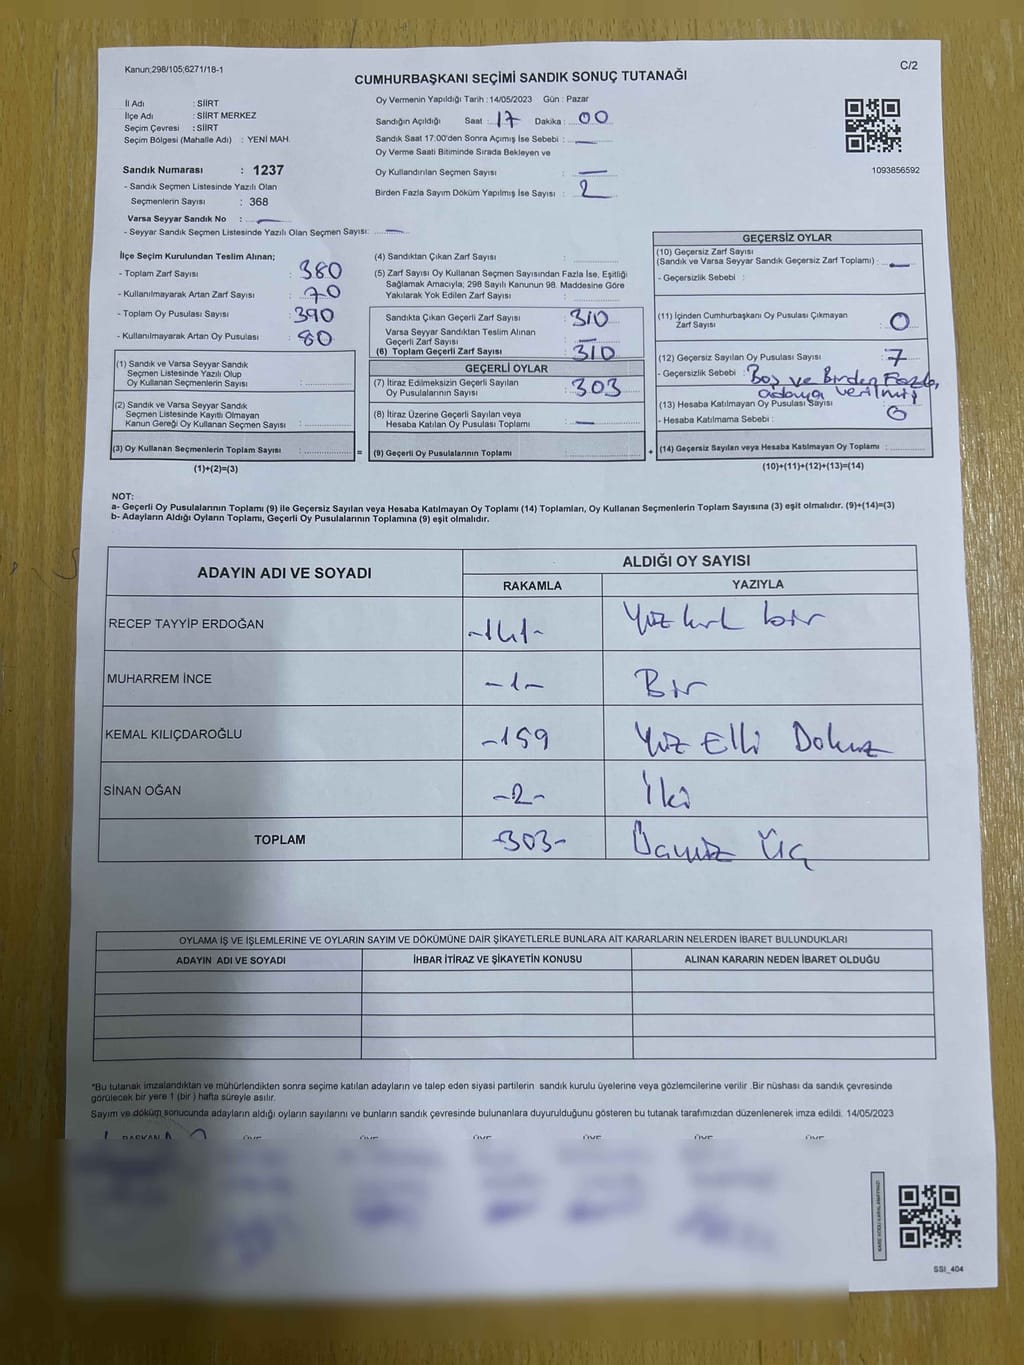 Kanun;298/105;6271/18-1
C/2
CUMHURBAŞKANI SEÇİMİ SANDIK SONUÇ TUTANAĞI
İl Adı : SİİRT
İlçe Adı : SİİRT MERKEZ
Seçim Çevresi : SİİRT
Seçim Bölgesi (Mahalle Adı) : YENİ MAH.
Sandık Numarası : 1237
- Sandık Seçmen Listesinde Yazılı Olan
Seçmenlerin Sayısı : 368
Varsa Seyyar Sandık No : —
- Seyyar Sandık Seçmen Listesinde Yazılı Olan Seçmen Sayısı: —
Oy Vermenin Yapıldığı Tarih :14/05/2023 Gün : Pazar
Sandığın Açıldığı Saat : 17 Dakika : 00
Sandık Saat 17:00'den Sonra Açımış İse Sebebi : —
Oy Verme Saati Bitiminde Sırada Bekleyen ve
Oy Kullandırılan Seçmen Sayısı : —
Birden Fazla Sayım Döküm Yapılmış İse Sayısı : 2
1093856592
İlçe Seçim Kurulundan Teslim Alınan;
- Toplam Zarf Sayısı : 380
- Kullanılmayarak Artan Zarf Sayısı : 70
- Toplam Oy Pusulası Sayısı : 390
- Kullanılmayarak Artan Oy Pusulası : 80
(1) Sandık ve Varsa Seyyar Sandık
Seçmen Listesinde Yazılı Olup
Oy Kullanan Seçmenlerin Sayısı :
(2) Sandık ve Varsa Seyyar Sandık
Seçmen Listesinde Kayıtlı Olmayan
Kanun Gereği Oy Kullanan Seçmen Sayısı :
(3) Oy Kullanan Seçmenlerin Toplam Sayısı :
(1)+(2)=(3)
(4) Sandıktan Çıkan Zarf Sayısı :
(5) Zarf Sayısı Oy Kullanan Seçmen Sayısından Fazla İse, Eşitliği
Sağlamak Amacıyla; 298 Sayılı Kanunun 98. Maddesine Göre
Yakılarak Yok Edilen Zarf Sayısı :
Sandıkta Çıkan Geçerli Zarf Sayısı : 310
Varsa Seyyar Sandıktan Teslim Alınan
Geçerli Zarf Sayısı : —
(6) Toplam Geçerli Zarf Sayısı : 310
GEÇERLİ OYLAR
(7) İtiraz Edilmeksizin Geçerli Sayılan
Oy Pusulalarının Sayısı : 303
(8) İtiraz Üzerine Geçerli Sayılan veya
Hesaba Katılan Oy Pusulası Toplamı : —
= (9) Geçerli Oy Pusulalarının Toplamı :
GEÇERSİZ OYLAR
(10) Geçersiz Zarf Sayısı
(Sandık ve Varsa Seyyar Sandık Geçersiz Zarf Toplamı) : —
- Geçersizlik Sebebi :
(11) İçinden Cumhurbaşkanı Oy Pusulası Çıkmayan
Zarf Sayısı : 0
(12) Geçersiz Sayılan Oy Pusulası Sayısı : 7
- Geçersizlik Sebebi : Boş ve Birden Fazla
adaya verilmiş
(13) Hesaba Katılmayan Oy Pusulası Sayısı : 0
- Hesaba Katılmama Sebebi :
+ (14) Geçersiz Sayılan veya Hesaba Katılmayan Oy Toplamı :
(10)+(11)+(12)+(13)=(14)
NOT:
a- Geçerli Oy Pusulalarının Toplamı (9) ile Geçersiz Sayılan veya Hesaba Katılmayan Oy Toplamı (14) Toplamları, Oy Kullanan Seçmenlerin Toplam Sayısına (3) eşit olmalıdır. (9)+(14)=(3)
b- Adayların Aldığı Oyların Toplamı, Geçerli Oy Pusulalarının Toplamına (9) eşit olmalıdır.
ADAYIN ADI VE SOYADI
ALDIĞI OY SAYISI
RAKAMLA YAZIYLA
RECEP TAYYİP ERDOĞAN -141- Yüz kırk bir
MUHARREM İNCE -1- Bir
KEMAL KILIÇDAROĞLU -159 Yüz Elli Dokuz
SİNAN OĞAN -2- İki
TOPLAM -303- Üçyüz Üç
OYLAMA İŞ VE İŞLEMLERİNE VE OYLARIN SAYIM VE DÖKÜMÜNE DAİR ŞİKAYETLERLE BUNLARA AİT KARARLARIN NELERDEN İBARET BULUNDUKLARI
ADAYIN ADI VE SOYADI İHBAR İTİRAZ VE ŞİKAYETİN KONUSU ALINAN KARARIN NEDEN İBARET OLDUĞU
*Bu tutanak imzalandıktan ve mühürlendikten sonra seçime katılan adayların ve talep eden siyasi partilerin sandık kurulu üyelerine veya gözlemcilerine verilir .Bir nüshası da sandık çevresinde
görülecek bir yere 1 (bir ) hafta süreyle asılır.
Sayım ve döküm sonucunda adayların aldığı oyların sayılarını ve bunların sandık çevresinde bulunanlara duyurulduğunu gösteren bu tutanak tarafımızdan düzenlenerek imza edildi. 14/05/2023
BAŞKAN ÜYE ÜYE ÜYE ÜYE ÜYE ÜYE
SSI_404